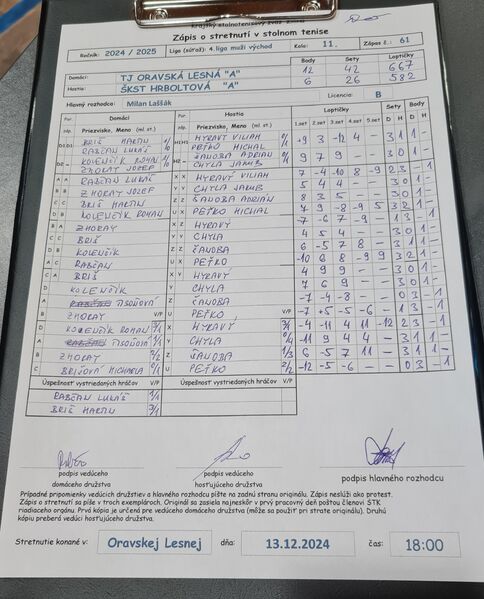 Krajský stolnotenisový zväz Žilina
Zápis o stretnutí v stolnom tenise
Ročník: 2024 / 2025 Liga (súťaž): 4.liga muži východ Kolo: 11. Zápas č. 61
Body Sety Loptičky
Domáci: TJ ORAVSKÁ LESNÁ "A" 12 42 667
Hostia: ŠKST HRBOLTOVÁ "A" 6 26 582
Hlavný rozhodca: Milan Laššák Licencia: B
Domáci Hostia Loptičky Sety Body
Priezvisko, Meno (ml. st.) V/P Priezvisko, Meno (ml. st.) V/P 1.set 2.set 3.set 4.set 5.set D H D H
BRIŠ MARTIN HYRAVÝ VILIAM +9 3 -12 4 - 3 1 1 -
RABČAN LUKÁŠ PEŤKO MICHAL
KOLENČÍK ROMAN ŠANOBA ADRIÁN 9 7 9 - - 3 0 1 -
ZMORAY JOZEF CHYLA JAKUB
A RABČAN LUKÁŠ X HYRAVÝ VILIAM 7 -4 -10 8 -9 2 3 - 1
B ZMORAY JOZEF Y CHYLA JAKUB 5 4 4 - - 3 0 1 -
C BRIŠ MARTIN Z ŠANOBA ADRIÁN 8 3 5 - - 3 0 1 -
D KOLENČÍK ROMAN U PEŤKO MICHAL 7 9 -8 -9 5 3 2 1 -
B ZMORAY X HYRAVÝ -7 -6 7 -9 - 1 3 - 1
C BRIŠ Y CHYLA 4 5 4 - - 3 0 1 -
D KOLENČÍK Z ŠANOBA 6 -5 7 8 - 3 1 1 -
A RABČAN U PEŤKO -10 6 8 -9 9 3 2 1 -
C BRIŠ X HYRAVÝ 4 9 9 - - 3 0 1 -
D KOLENČÍK Y CHYLA 7 6 9 - - 3 0 1 -
Z ŠANOBA -7 -4 -8 - - 0 3 - 1
B ZMORAY U PEŤKO -7 +5 -5 -6 - 1 3 - 1
D KOLENČÍK ROMAN 3/1 X HYRAVÝ -4 -11 4 11 -12 2 3 - 1
Y CHYLA 0/4 -11 9 4 4 - 3 1 1 -
B ZMORAY 2/2 Z ŠANOBA 1/3 6 -5 7 11 - 3 1 1 -
C BRIŠOVÁ MICHAELA 0/1 U PEŤKO 2/2 -12 -5 -6 - - 0 3 - 1
Úspešnosť vystriedaných hráčov V/P Úspešnosť vystriedaných hráčov V/P
RABČAN LUKÁŠ 1/1
BRIŠ MARTIN 3/1
podpis vedúceho podpis vedúceho podpis hlavného rozhodcu
domáceho družstva hosťujúceho družstva
Prípadné pripomienky vedúcich družstiev a hlavného rozhodcu píšte na zadnú stranu originálu. Zápis neslúži ako protest.
Zápis o stretnutí sa píše v troch exemplároch. Originál sa zasiela najneskôr v prvý pracovný deň poštou členovi ŠTK
riadiaceho orgánu. Prvá kópia je určená pre vedúceho domáceho družstva (môže sa použiť pri strate originálu). Druhú
kópiu preberá vedúci hosťujúceho družstva.
Stretnutie konané v: Oravskej Lesnej dňa: 13.12.2024 čas: 18:00